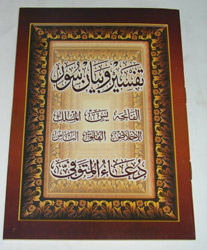 تفسير وبيان سور
الفاتحة يس الملك
الإخلاص الفلق الناس
دعاء المتوفى